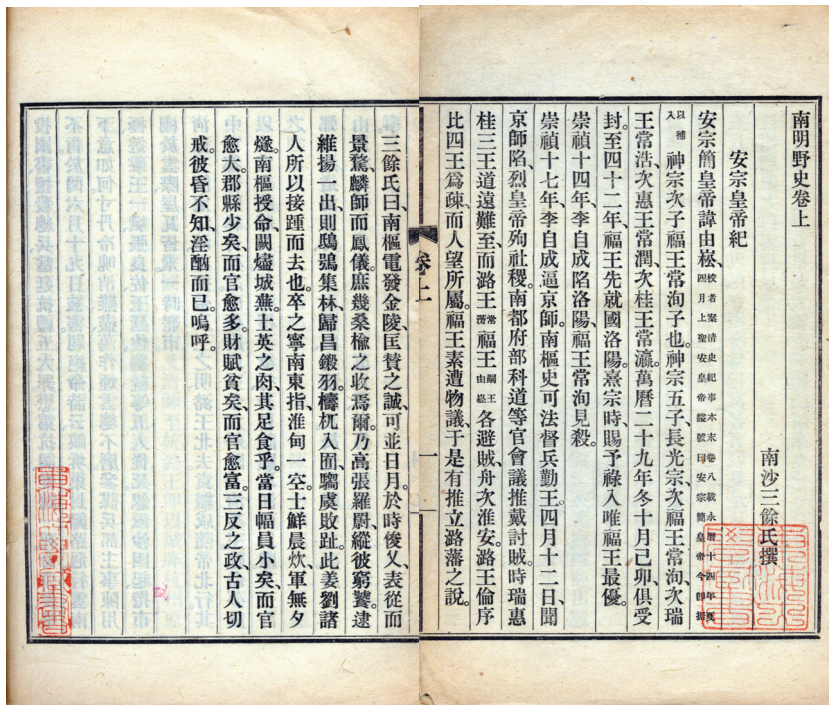 南明野史卷上
南沙三餘氏撰
安宗皇帝紀
安宗簡皇帝諱由崧、校者案清史紀事本末卷八載永曆十四年夏四月上聖安皇帝諡號曰安宗簡皇帝今卽據
以補入神宗次子福王常洵子也。神宗五子、長光宗、次福王常洵、次瑞
王常浩、次惠王常潤、次桂王常瀛。萬曆二十九年冬十月己卯、俱受
封。至四十二年、福王先就國洛陽。熹宗時、賜予祿入唯福王最優。
崇禎十四年、李自成陷洛陽、福王常洵見殺。
崇禎十七年、李自成逼京師、南樞史可法督兵勤王。四月十二日、聞
京師陷、烈皇帝殉社稷。南都府部科道等官會議推戴討賊。時瑞惠
桂三王道遠難至、而潞王常淓福王嗣王由崧各避賊、舟次淮安。潞王倫序
比四王爲疎、而人望所屬。福王素遭物議、于是有推立潞藩之說。
卷上
一
三餘氏曰、南樞電發金陵、匡贊之誠、可並日月。於時俊乂、表從而
景騖、麟師而鳳儀。庶幾桑楡之收焉爾。乃高張羅罻、縱彼窮饕、逮
維揚一出、則鴟鴞集林、歸昌鎩羽、檮杌入囿、騶虞敗趾。此姜劉諸
人所以接踵而去也。卒之寧南東指、淮甸一空、士鮮晨炊、軍無夕
燧。南樞授命、闕燼城蕪。士英之肉、其足食乎。當日幅員小矣、而官
愈大。郡縣少矣、而官愈多。財賦貧矣、而官愈富。三反之政、古人切
戒。彼昏不知、淫酗而已。嗚呼。